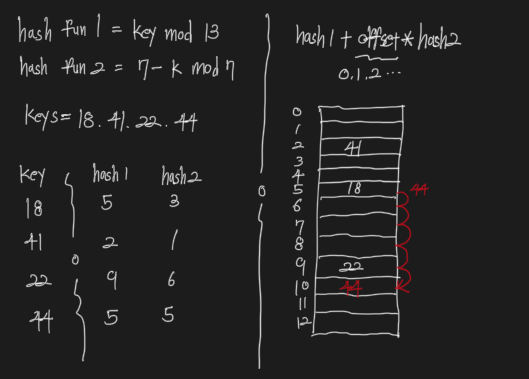 hash fun 1 = key mod 13
hash fun 2 = 7 - k mod 7
keys = 18. 41. 22. 44
key hash 1 hash 2
18 5 3
41 2 1
22 9 6
44 5 5
hash 1 + offset * hash 2
0.1.2 ...
0
1
2 41
3
4
5 18 44
6
7
8
9 22
10 44
11
12